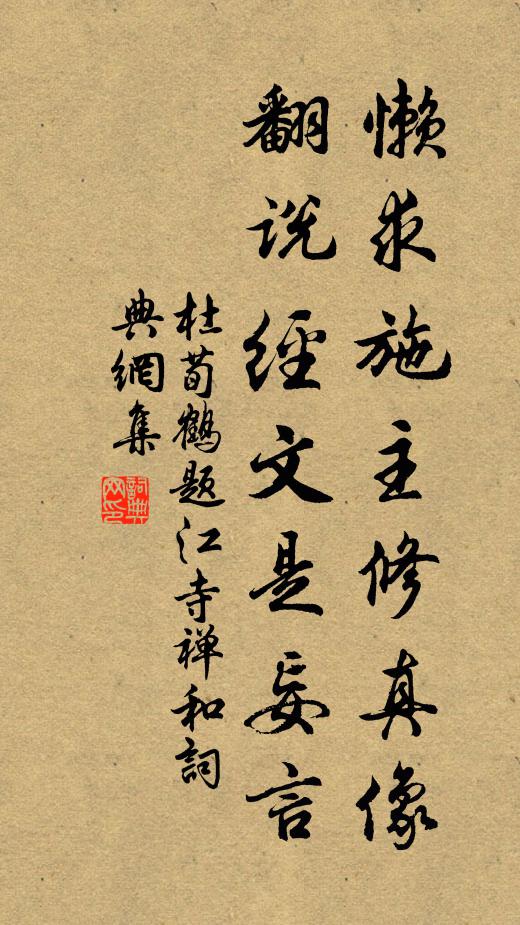 懒求施主修真像
翻说经文是妄言
杜荀鹤题江寺禅和詞
典網集
詞典
网印